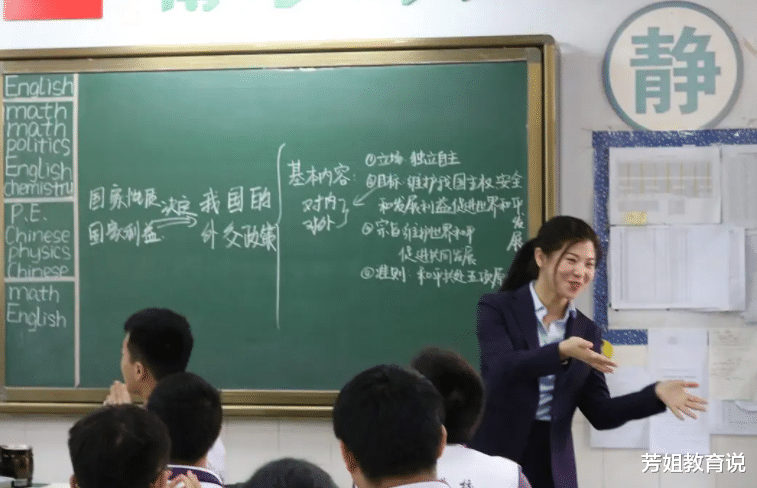 静
English
math
math
politics
English
chemistry
P.E.
Chinese
physics
Chinese
math
English
国家性质
国家利益
决定
我国的
外交政策
基本内容:
对内
对外
①立场:独立自主
②目标:维护我国主权安全
和发展利益促进世界和平
发展
③宗旨:维护世界和平
促进共同发展
④准则:和平共处五项原
芳姐教育说